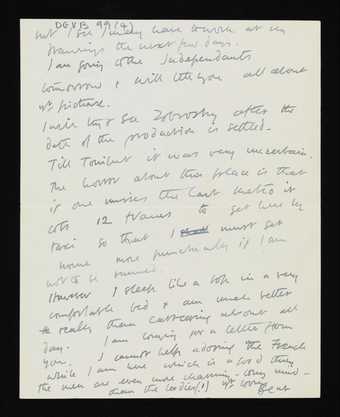 DGVB 99(4)
but I see I have to work at my
drawings the next few days.
I am going to the Independants
tomorrow & will tell you all about
yr picture.
I will try & see Zborosky after the
date of the production is settled -
Till tonight it was very uncertain.
The horror about this place is that
if one misses the last metro it
costs 12 francs to get here by
taxi so that I must get
home more punctually if I am
not to be ruined.
However I sleep like a top in a very
comfortable bed & am much better
really than careering about all
day. I am longing for a letter from
you. I cannot help adoring the French
while I am here which is a good thing
the men are even more charming - to my mind -
than the ladies[!] yr loving
Bear